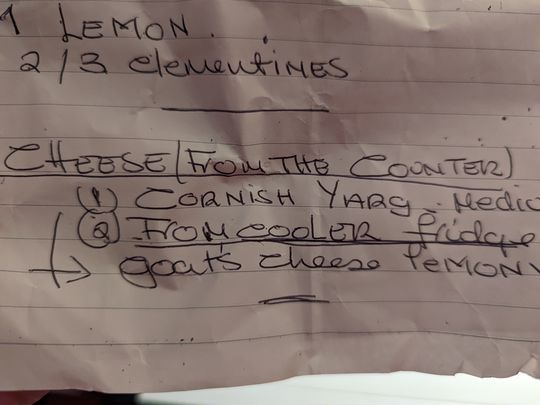 1 LEMON.
2/3 clementines
CHEESE (FROM THE COUNTER)
(1) CORNISH YARG. Medic
(2) FROM COOLER fridge
goat's cheese LEMONY